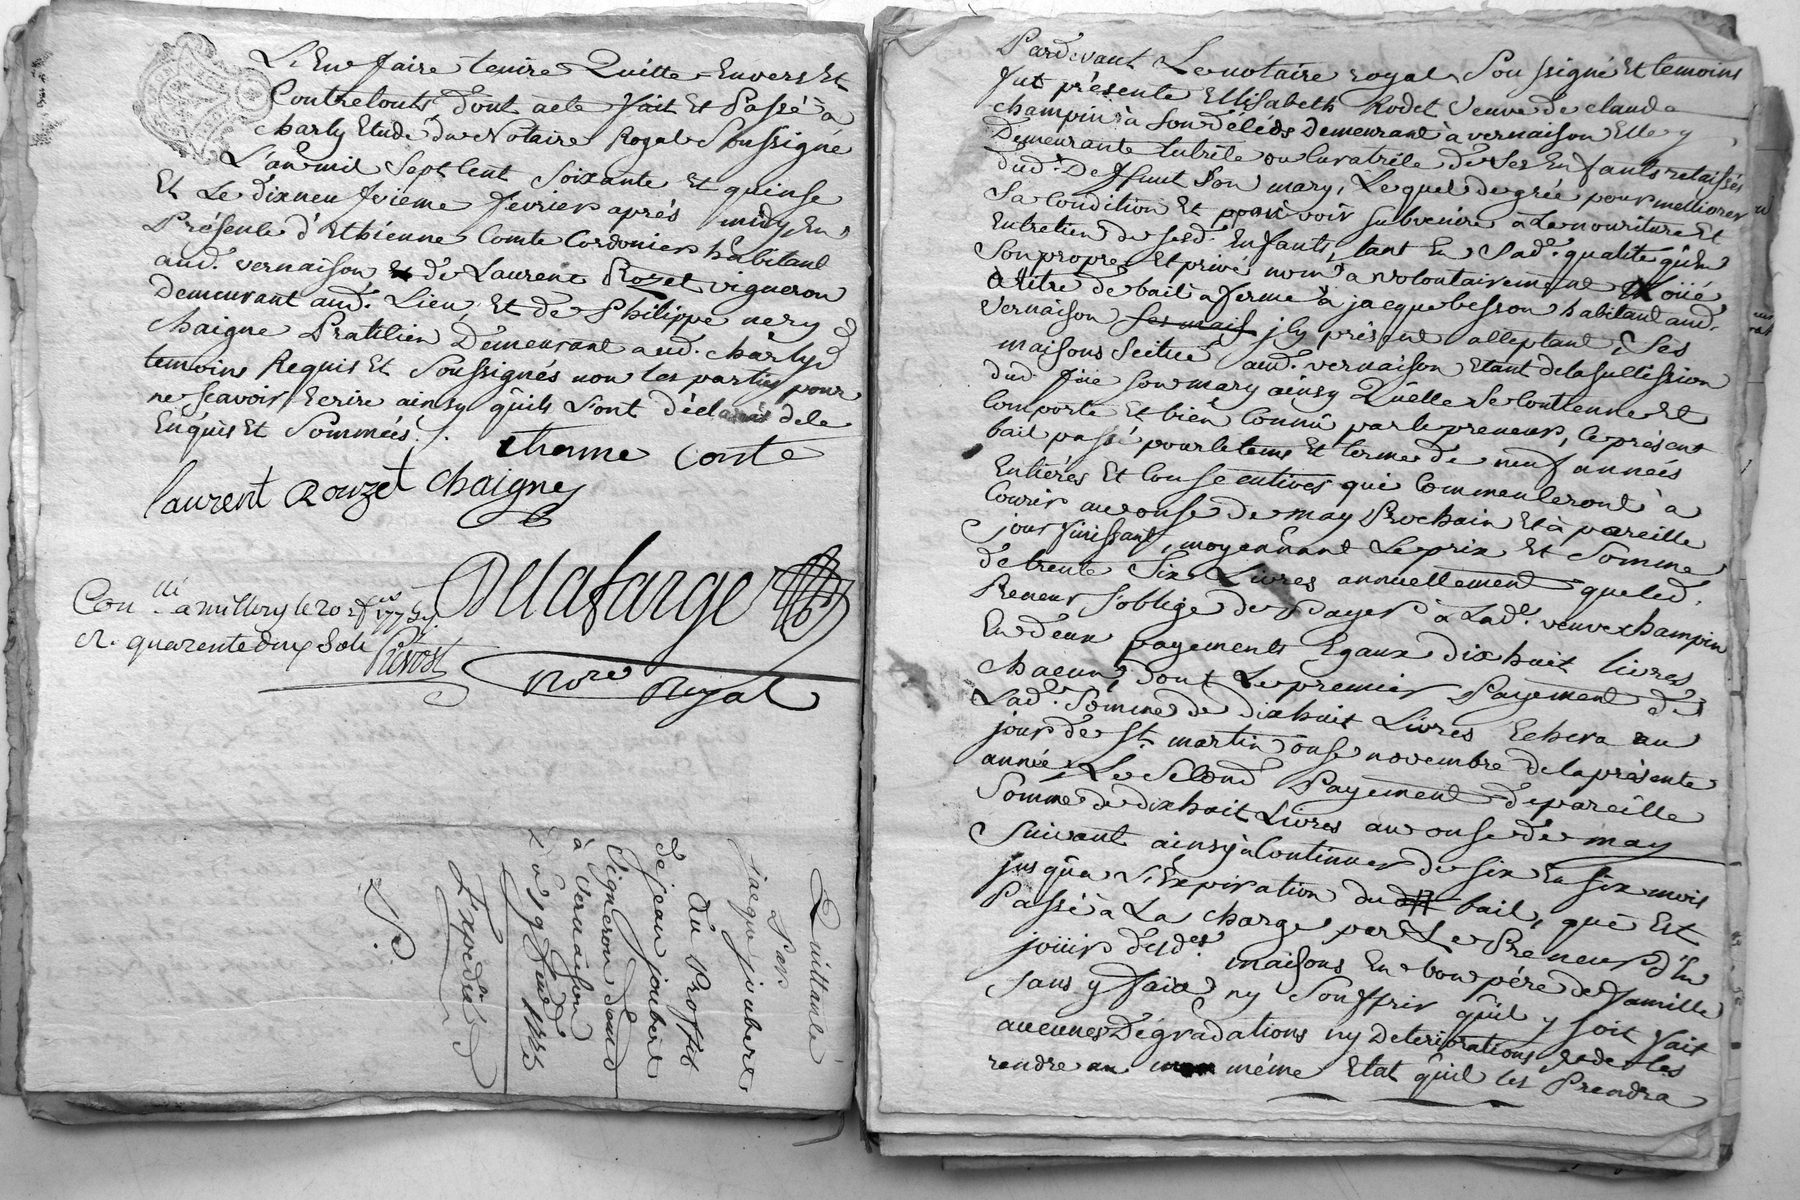 L'En faire tenire Quitte Envers Et
Contre touts d'ont acte fait Et Passé à
charly Etude du Notaire Royal Soussigné
L'an mil Sept Cent Soixante Et quinse
Et Le dixneufvieme fevrier aprés midy, En
Présence d'Ethienne Comte Cordonier habitant
aud. vernaison, de Laurent Rozet vigneron
demeurant aud. Lieu, Et de Philippe nery
chaigne Praticien Demeurant aud. charly
temoins Requis Et Soussignés non les parties pour
ne Scavoir Ecrire ainsy quils Sont déclarés de ce
Enquis Et Sommées ./.
Etienne Comte
laurent Rouzet Chaigne
Delafarge
Con.llé a millery le 20 f.er 1775
R. quarente deux Sols
Prévost
Nore Royal
Quittance
Par
jacque joubert
du Proffit
de jean joubert
vigneron
à vernaison
Du 19 fevr 1775
Expédiée
Pardevant Le notaire royal Soussigné Et temoins
fut présente Ellisabeth Rodet Veuve de claude
champin à Son décéds demeurant à vernaison Elle y
Demeurante tutrice ou curatrice de Ses Enfants relaissés
dud. Deffunt Son mary, Lequel de gré pour melliorer
Sa Condition Et pouvoir Subvenire à La nouriture Et
Entretien de Sesd. Enfants, tant En Sad. qualité qu'En
Son propre Et privé nom a volontairement loüé
à titre de bail à ferme à jacque besson habitant aud.
vernaison jcy présent acceptant, Ses
maisons Scitué aud. vernaison Etant de la Succission
dud. feü Son mary ainsy Quélle Se Contienne Et
Comporte Et bien Connû par le preneur, le présent
bail passé pour le tems Et terme de neuf années
Entiéres Et Consecutives qui Commenceront à
Courir au onse de may Prochain Et à pareille
jour finissant, moyennant Le prix Et Somme
de trente Six Livres annuellement que led.
Preneur S'oblige de Payer à Lad. veuve champin
En deux payements Egaux dix huit livres
chacun, dont Le premier Payement de
Lad. Somme de dix huit Livres Echera au
jour de St. martin onse novembre de la présente
année, Le Second Payement de pareille
Somme de dix huit Livres au onse de may
Suivant ainsy à Continuer de Six En Six mois
jusqua L'Expiration du bail, que Est
Passé à La charge par Le Preneur d'En
joüir desd.es maisons En bon pére de famille
Sans y faire ny Souffrir quil y soit fait
aucunes Dégradations ny Deteriorations Et de les
rendre au même Etat quil les Prendra